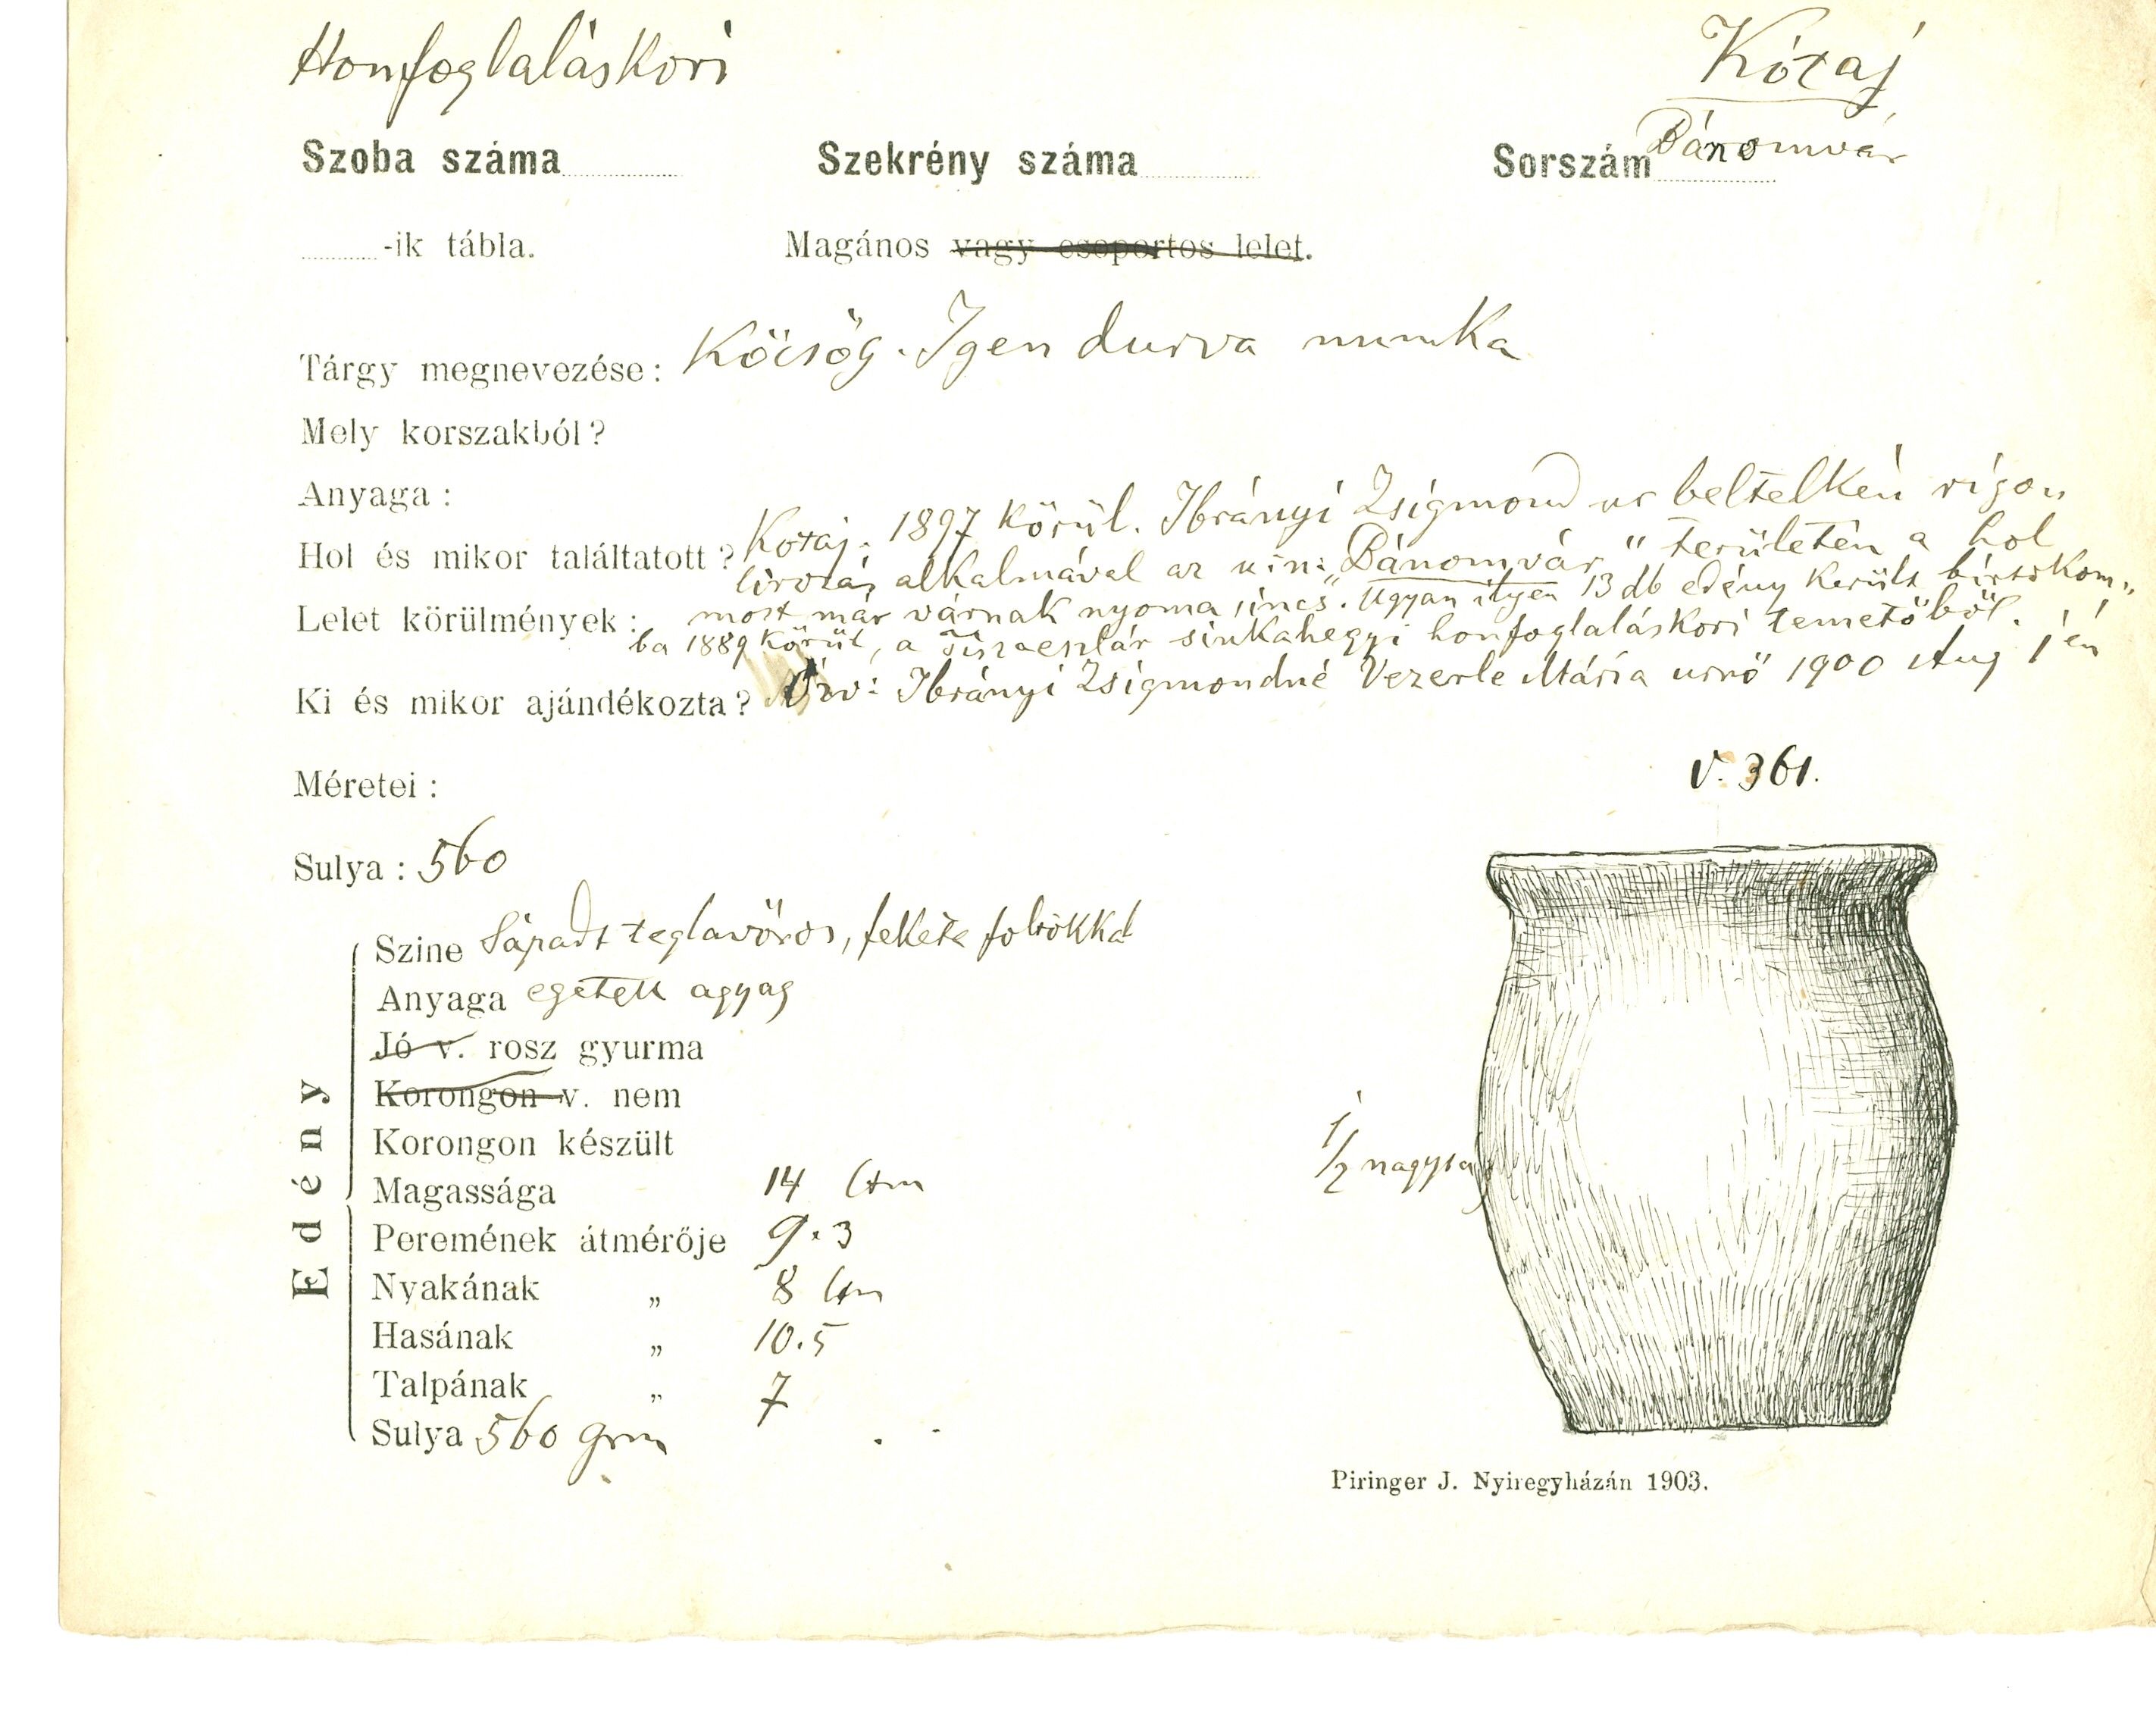 Honfoglaláskori
Kótaj
Szoba száma Szekrény száma Sorszám Bánomvár
-ik tábla. Magános vagy csoportos lelet.
Tárgy megnevezése: Köcsög. Igen durva munka
Mely korszakból?
Anyaga:
Hol és mikor találtatott? Kotaj. 1897 körül. Ibrányi Zsigmond ur beltelkén rigon
alkalmával az u.in: „Bánomvár" területén a hol
Lelet körülmények: most már várnak nyoma sincs. Ugyan ilyen 13 db edény került birtokom„
ba 1889 körül, a Tiszaeszlár sinkahegyi honfoglaláskori temetőből.
Ki és mikor ajándékozta? Özv: Ibrányi Zsigmondné Vezerle Mária urnő 1900 Aug 1 én
Méretei:
V. 361.
Sulya: 560
Edény
Szine Sápadt teglavörös, fekete foltokkal
Anyaga egetett agyag
Jó v. rosz gyurma
Korongon v. nem
Korongon készült
Magassága 14 Ctm
½ nagyság
Peremének átmérője 9.3
Nyakának „ 8 Ctm
Hasának „ 10.5
Talpának „ 7
Sulya 560 grm
Piringer J. Nyiregyházán 1903.